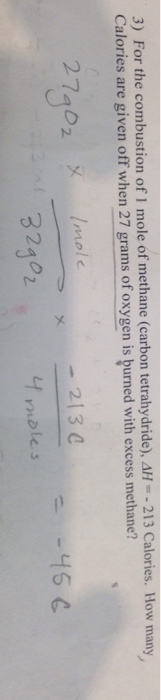 3) For the combustion of 1 mole of methane (carbon tetrahydride), ΔH = - 213 Calories. How many
Calories are given off when 27 grams of oxygen is burned with excess methane?
27gO2 x 1mole x -213C = -45C
32gO2 4 moles